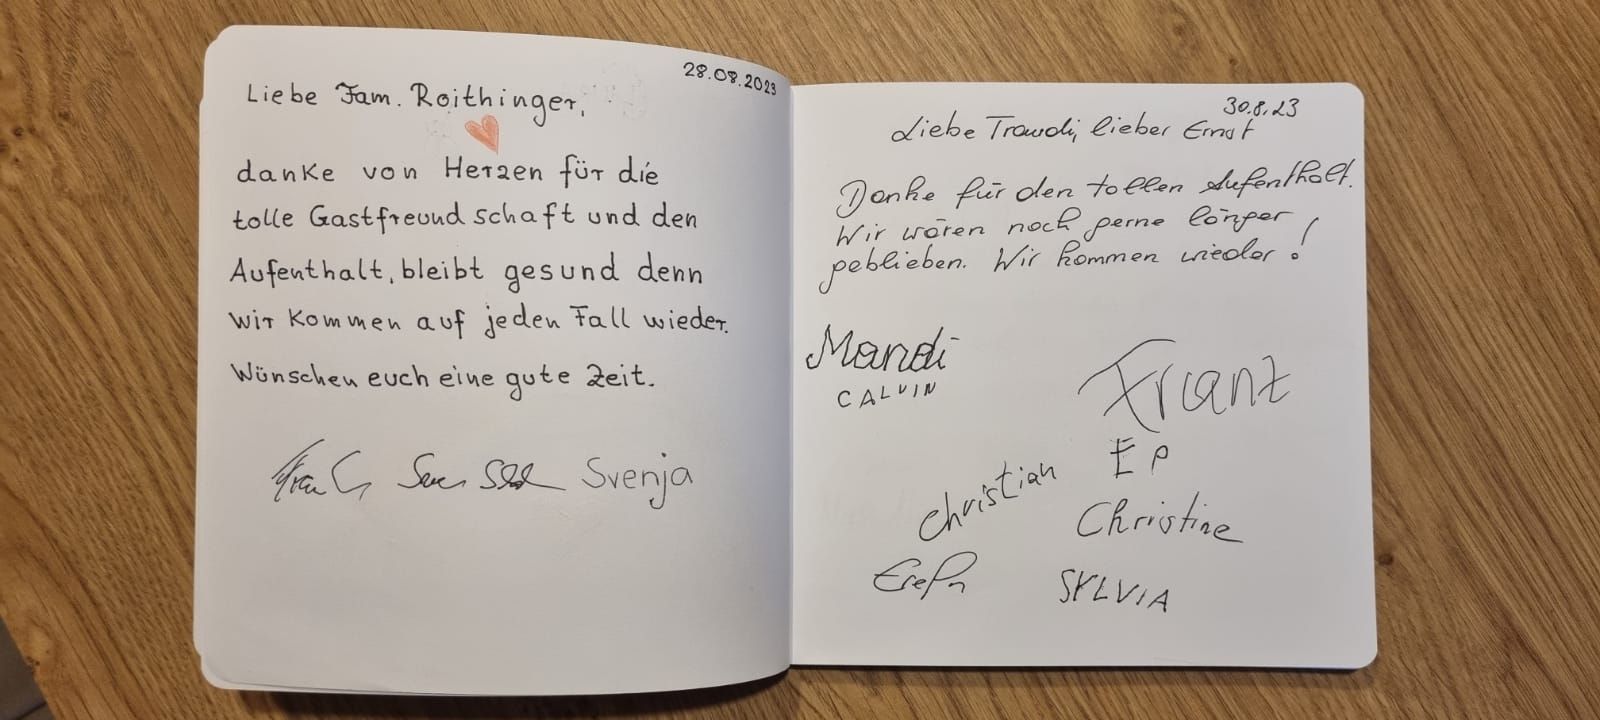 28.08.2023
Liebe Fam. Roithinger,
danke von Herzen für die
tolle Gastfreundschaft und den
Aufenthalt, bleibt gesund denn
wir kommen auf jeden Fall wieder.
Wünschen euch eine gute Zeit.
Svenja
30.8.23
Liebe Traudi, lieber Ernst
Danke für den tollen Aufenthalt.
Wir wären noch gerne länger
geblieben. Wir kommen wieder!
Mandi
CALVIN
Franz
EP
Christian
Christine
SYLVIA